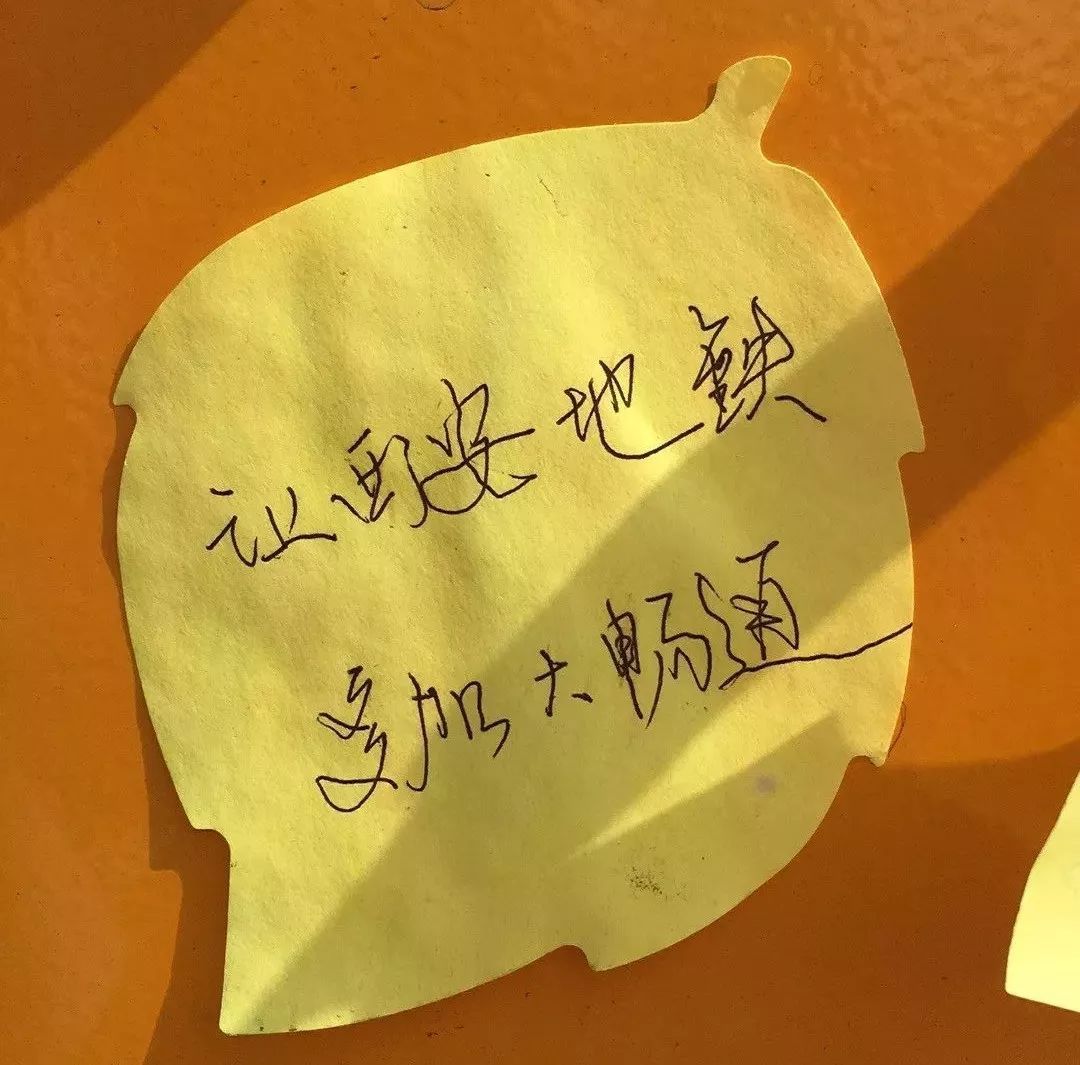 让西安地鐵
更加大畅通